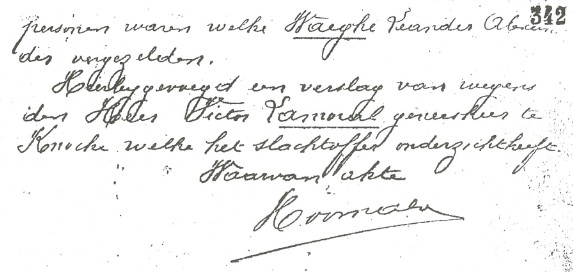 342
personen waren welke Waeghe Leander Aloïs
des vergezelden.
Hierbijgevoegd een verslag van wegens
den Heer Victor Lamoral geneesheer te
Knocke welke het slachtoffer onderzicht heeft
Waarvan akte